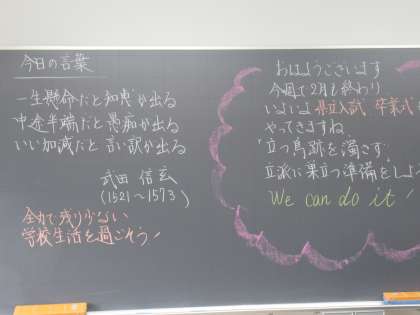 今日の言葉
一生懸命だと知恵が出る
中途半端だと愚痴が出る
いい加減だと言い訳が出る
武田 信玄
(1521～1573)
全力で残り少ない
学校生活を過ごそう！
おはようございます
今週で2月も終わり
いよいよ県立入試 卒業式
やってきますね
「立つ鳥跡を濁さず」
立派に巣立つ準備をしよ
We can do it!